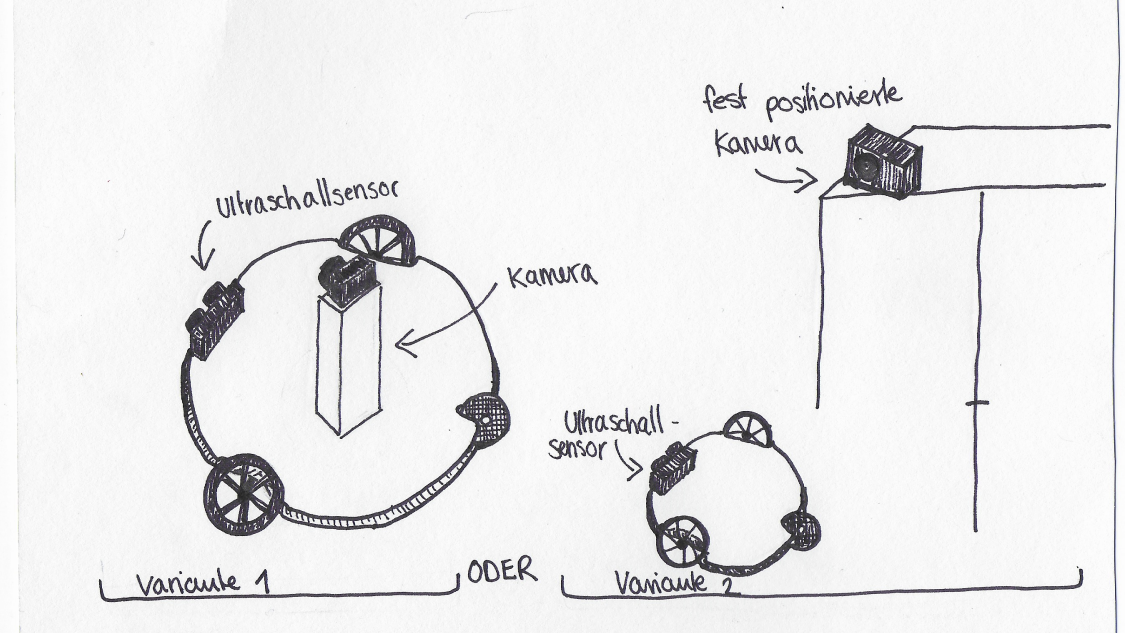 Ultraschallsensor
Kamera
Variante 1
ODER
fest positionierte
Kamera
Ultraschall-
sensor
Variante 2